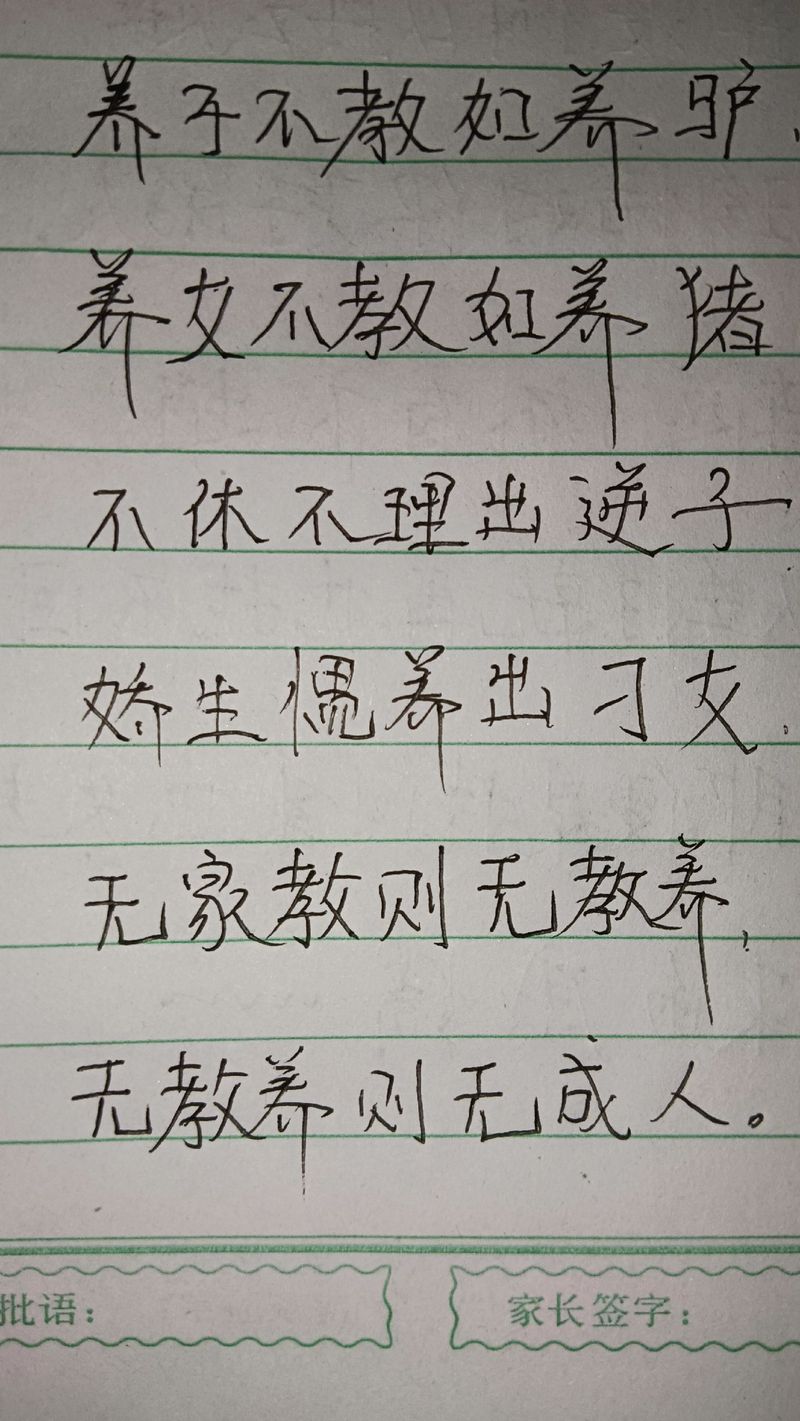 养子不教如养驴，
养女不教如养猪
不休不理出逆子
娇生惯养出刁女，
无家教则无教养，
无教养则无成人。
批语： 家长签字：